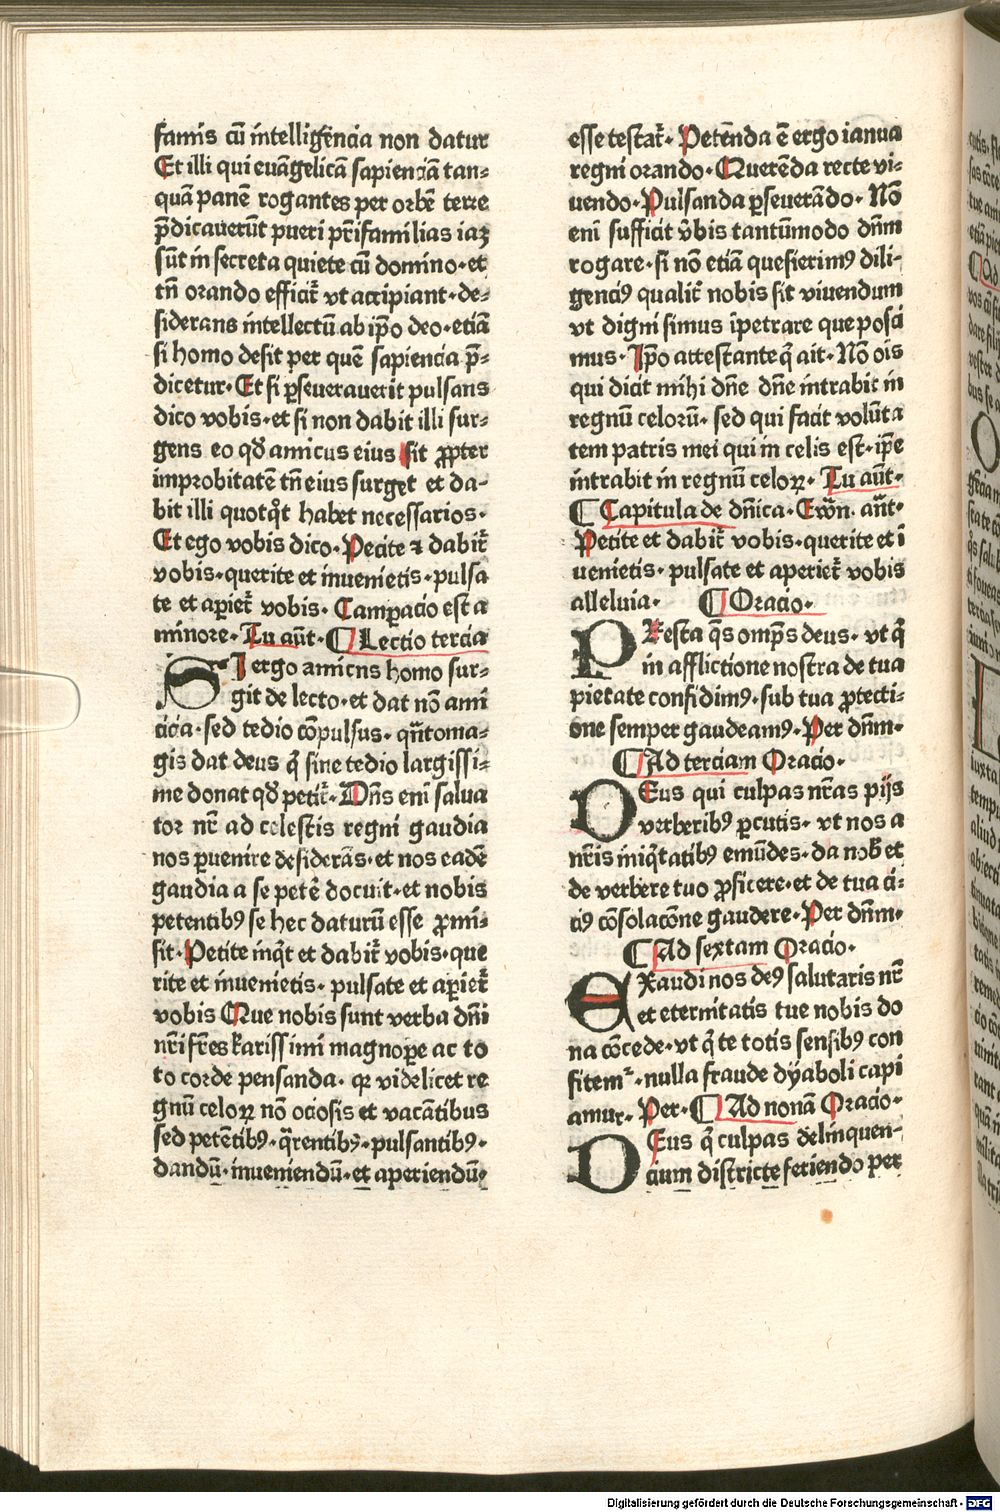 famis cū intelligēncia non datur
Et illi qui euāgelicā sapienciā tan⸗
quā panē rogantes per orbē terre
p̄dicauerūt pueri pr̄ifamilias iaꝫ
sūt in secreta quiete cū domino·et
tn̄ orando efficit᷑ vt accipiant·de⸗
siderans intellectū ab ip̄o deo·etiā
si homo desit per quē sapiencia p̄⸗
dicetur·Et si ꝑseuerauerit pulsans
dico vobis·et si non dabit illi sur⸗
gens eo qd̄ amicus eius sit ꝓpter
improbitatē tn̄ eius surget et da⸗
bit illi quotq̄t habet necessarios·
Et ego vobis dico·Petite ⁊ dabit᷑
vobis·querite et inuenietis·pulsa
te et aꝑiet᷑ vobis· Camꝑacio est a
minore·Tu aūt·¶ Lectio tercia
SI ergo amicns homo sur⸗
git de lecto·et dat nō ami
cicia·sed tedio cōpulsus· qn̄toma⸗
gis dat deus q̄ sine tedio largissi⸗
me donat qd̄ petit᷑·Dn̄s eni salua
tor nr̄ ad celestis regni gaudia
nos ꝑuenire desiderās·et nos eadē
gaudia a se petē docuit·et nobis
petentibꝰ se hec daturū esse ꝓmi⸗
sit·Petite inq̄t et dabit᷑ vobis·que
rite et inuenietis· pulsate et aꝑiet᷑
vobis Que nobis sunt verba dn̄i
nr̄i fr̄es karissimi magnoꝑe ac to
to corde pensanda· qꝛ videlicet re
gnū celoꝝ nō ociosis et vacātibus
sed petētibꝰ·q̄rentibꝰ·pulsantibꝰ·
dandū·inueniendū·et aperiendū·
esse testat᷑· Petēnda ē ergo ianua
regni orando·Querēda recte vi⸗
uendo·Pulsanda ꝑseuerādo· Nō
eni sufficit v̄bis tantūmodo dn̄m
rogare·si nō etiā quesierimꝰ dili⸗
genciꝰ qualit᷑ nobis sit viuendum
vt digni simus īpetrare que posci
mus·Ip̄o attestante q̄ ait·Nō ois
qui dicit mihi dn̄e dn̄e intrabit in
regnū celorū· sed qui facit volūta
tem patris mei qui in celis est·ip̄e
intrabit in regnū celoꝝ· Tu aūt·
¶ Capitula de dn̄ica·Ewn̄. an̄t·
Petite et dabit᷑ vobis·querite et ī
uenietis· pulsate et aperiet᷑ vobis
alleluia· ¶ Oracio·
PResta q̄s omp̄s deus· vt q̄
in afflictione nostra de tua
pietate confidimꝰ·sub tua ꝓtecti⸗
one semper gaudeamꝰ·Per dn̄m·
¶ Ad terciam Oracio·
DEus qui culpas nr̄as pijs
verberibꝰ ꝑcutis· vt nos a
nr̄is iniq̄tatibꝰ emūdes·da nob̄ et
de verbere tuo ꝓficere·et de tua ci⸗
tiꝰ cōsolacōne gaudere·Per dn̄m·
¶ Ad sextam Oracio·
EXaudi nos deꝰ salutaris nr̄
et eternitatis tue nobis do
na cōcede·vt q̄ te totis sensibꝰ con
fitem᷑·nulla fraude dyaboli capi
amur·Per·¶ Ad nonā Oracio·
DEus q̄ culpas delinquen⸗
cium districte feriendo per
Digitalisierung gefördert durch die Deutsche Forschungsgemeinschaft - DFG